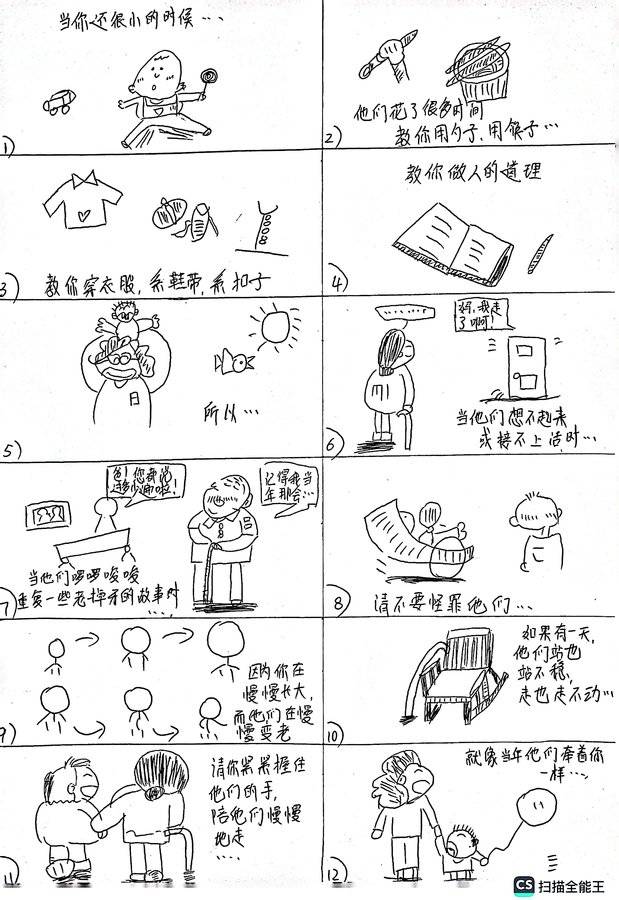 当你还很小的时候…
1)
他们花了很多时间
教你用勺子、用筷子…
2)
教你穿衣服,系鞋带,系扣子
3)
教你做人的道理
4)
所以…
5)
妈,我走
了啊!
当他们想不起来
或接不上话时…
6)
爸!您都说
过多少遍啦!
记得我当
年那会…
当他们啰啰唆唆
重复一些老掉牙的故事时
…
7
请不要怪罪他们…
8
因为你在
慢慢长大,
而他们在慢
慢变老
9)
如果有一天,
他们站也
站不稳,
走也走不动…
10)
请你紧紧握住
他们的手,
陪他们慢慢
地走
…
11
就像当年他们牵着你
一样…
12)
CS 扫描全能王